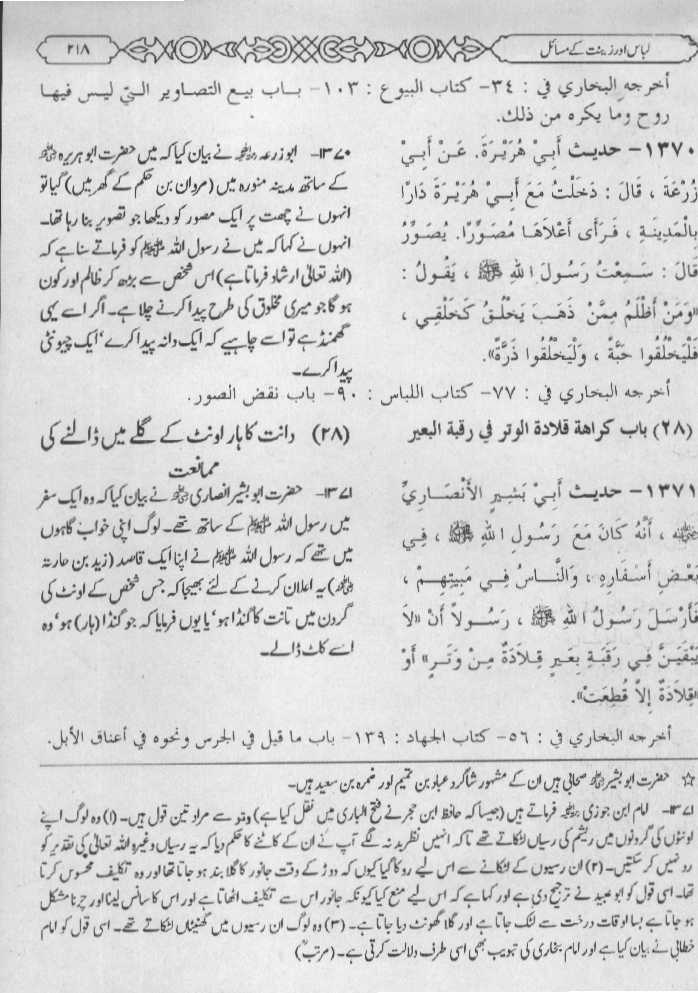 لباس اور زینت کے مسائل
۲۱۸
أخرجه البخاري في : ٣٤- كتاب البيوع : ١٠٣- باب بيع التصاوير التي ليس فيها
روح وما يكره من ذلك.
١٣٧٠- حديث أَبِيْ هُرَيْرَةَ. عَنْ أَبِيْ
زُرْعَةَ ، قَالَ : دَخَلْتُ مَعَ أَبِيْ هُرَيْرَةَ دَارًا
بِالْمَدِينَةِ ، فَرَأَى أَعْلَاهَا مُصَوِّرًا. يُصَوِّرُ
قَالَ : سَمِعْتُ رَسُولَ اللهِ ﷺ ، يَقُولُ :
«وَمَنْ أَظْلَمُ مِمَّنْ ذَهَبَ يَخْلُقُ كَخَلْقِي ،
فَلْيَخْلُقُوا حَبَّةً ، وَلْيَخْلُقُوا ذَرَّةً».
۱۳۷۰- ابو زرعہ رحمہ اللہ نے بیان کیا کہ میں حضرت ابو ہریرہ رضی اللہ عنہ
کے ساتھ مدینہ منورہ میں (مروان بن حکم کے گھر میں) گیا تو
انہوں نے چھت پر ایک مصور کو دیکھا جو تصویر بنا رہا تھا۔
انہوں نے کہا کہ میں نے رسول اللہ ﷺ کو فرماتے سنا ہے کہ
(اللہ تعالیٰ ارشاد فرماتا ہے) اس شخص سے بڑھ کر ظالم اور کون
ہو گا جو میری مخلوق کی طرح پیدا کرنے چلا ہے۔ اگر اسے یہی
گھمنڈ ہے تو اسے چاہیے کہ ایک دانہ پیدا کرے‘ ایک چیونٹی
پیدا کرے۔
أخرجه البخاري في : ٧٧- كتاب اللباس : ٩٠- باب نقض الصور.
(٢٨) باب كراهة قلادة الوتر في رقبة البعير
(۲۸) دانت کا ہار اونٹ کے گلے میں ڈالنے کی
ممانعت
١٣٧١- حديث أَبِيْ بَشِيرٍ الأَنْصَارِيِّ
رضی اللہ عنہ ، أَنَّهُ كَانَ مَعَ رَسُولِ اللهِ ﷺ ، فِي
بَعْضِ أَسْفَارِهِ ، وَالنَّاسُ فِي مَبِيتِهِمْ ،
فَأَرْسَلَ رَسُولُ اللهِ ﷺ ، رَسُولاً أَنْ «لاَ
يَبْقَيَنَّ فِي رَقَبَةِ بَعِيرٍ قِلاَدَةٌ مِنْ وَتَرٍ» أَوْ
«قِلاَدَةٌ إِلاَّ قُطِعَتْ».
۱۳۷۱- حضرت ابو بشیر انصاری رضی اللہ عنہ نے بیان کیا کہ وہ ایک سفر
میں رسول اللہ ﷺ کے ساتھ تھے۔ لوگ اپنی خواب گاہوں
میں تھے کہ رسول اللہ ﷺ نے اپنا ایک قاصد (زید بن حارثہ
رضی اللہ عنہ) یہ اعلان کرنے کے لئے بھیجا کہ جس شخص کے اونٹ کی
گردن میں تانت کا گنڈا ہو‘ یا یوں فرمایا کہ جو گنڈا (ہار) ہو‘ وہ
اسے کاٹ ڈالے۔
أخرجه البخاري في : ٥٦- كتاب الجهاد : ١٣٩- باب ما قيل في الجرس ونحوه في أعناق الأبل.
☆ حضرت ابو بشیر رضی اللہ عنہ صحابی ہیں ان کے مشہور شاگرد عباد بن تمیم اور ضمرہ بن سعید ہیں۔
۱۳۷۱- امام ابن جوزی رحمہ اللہ فرماتے ہیں (جیسا کہ حافظ ابن حجر نے فتح الباری میں نقل کیا ہے) وتو سے مراد تین قول ہیں۔ (۱) وہ لوگ اپنے
اونٹوں کی گردنوں میں ریشم کی رسیاں لٹکاتے تھے تا کہ انہیں نظر بد نہ لگے آپ نے ان کے کاٹنے کا حکم دیا کہ یہ رسیاں وغیرہ اللہ تعالیٰ کی تقدیر کو
رد نہیں کر سکتیں۔ (۲) ان رسیوں کے لٹکانے سے اس لیے روکا گیا کیوں کہ دوڑ کے وقت جانور کا گلا بند ہو جاتا تھا اور وہ تکلیف محسوس کرتا
تھا۔ اسی قول کو ابو عبید نے ترجیح دی ہے اور کہا ہے کہ اس لیے منع کیا کیونکہ جانور اس سے تکلیف اٹھاتا ہے اور اس کا سانس لینا اور چرنا مشکل
ہو جاتا ہے بسا اوقات درخت سے لٹک جاتا ہے اور گلا گھونٹ دیا جاتا ہے۔ (۳) وہ لوگ ان رسیوں میں گھنٹیاں لٹکاتے تھے۔ اسی قول کو امام
خطابی نے بیان کیا ہے اور امام بخاری کی تبویب بھی اسی طرف دلالت کرتی ہے۔ (مرتبؒ)